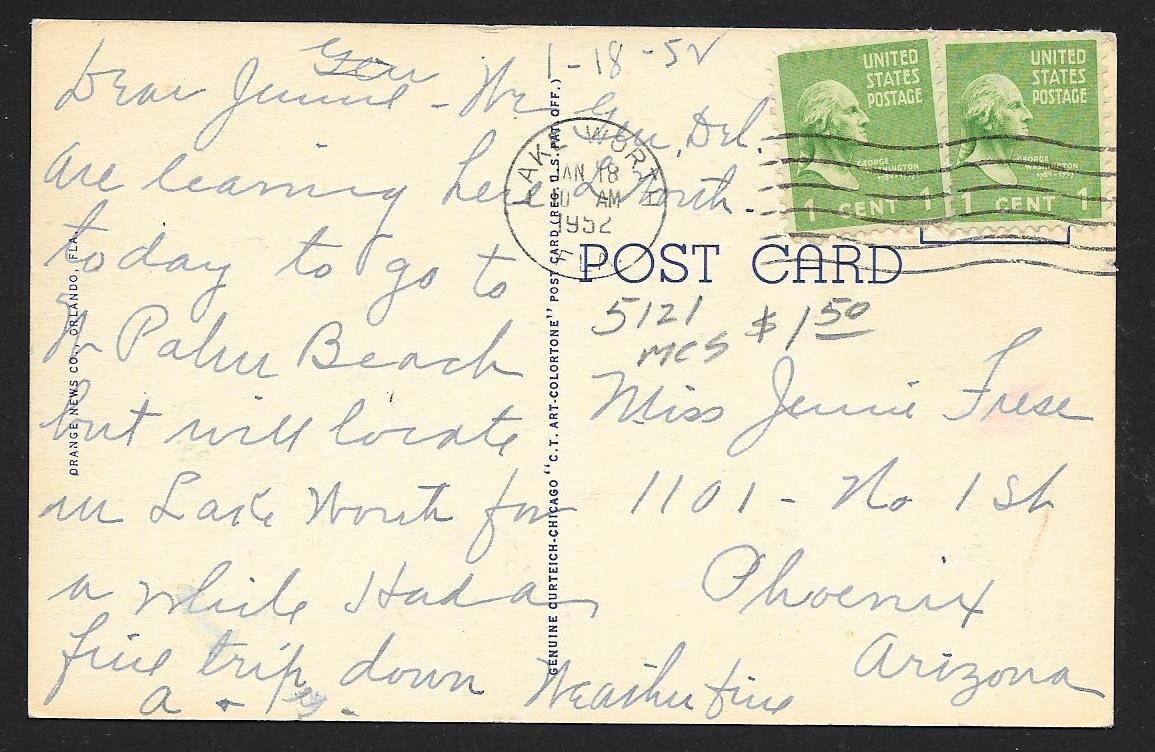 1-18-52
Dear Jennie - We Gen. Del.
are leaving here L Worth.
today to go to
W Palm Beach
but will locate
in Lake Worth for
a while Had a
fine trip down Weather fine
a + 
ORANGE NEWS CO., ORLANDO, FLA.
GENUINE CURTEICH-CHICAGO "C.T. ART-COLORTONE" POST CARD (REG. U.S. PAT. OFF.)
LAKE WORTH
JAN 18
AM
1952
FLA
UNITED
STATES
POSTAGE
GEORGE
WASHINGTON
1 CENT 1
UNITED
STATES
POSTAGE
GEORGE
WASHINGTON
1789-1797
1 CENT 1
POST CARD
5121 $1 50
MCS
Miss Jennie Frese
1101 - No 1 St
Phoenix
Arizona